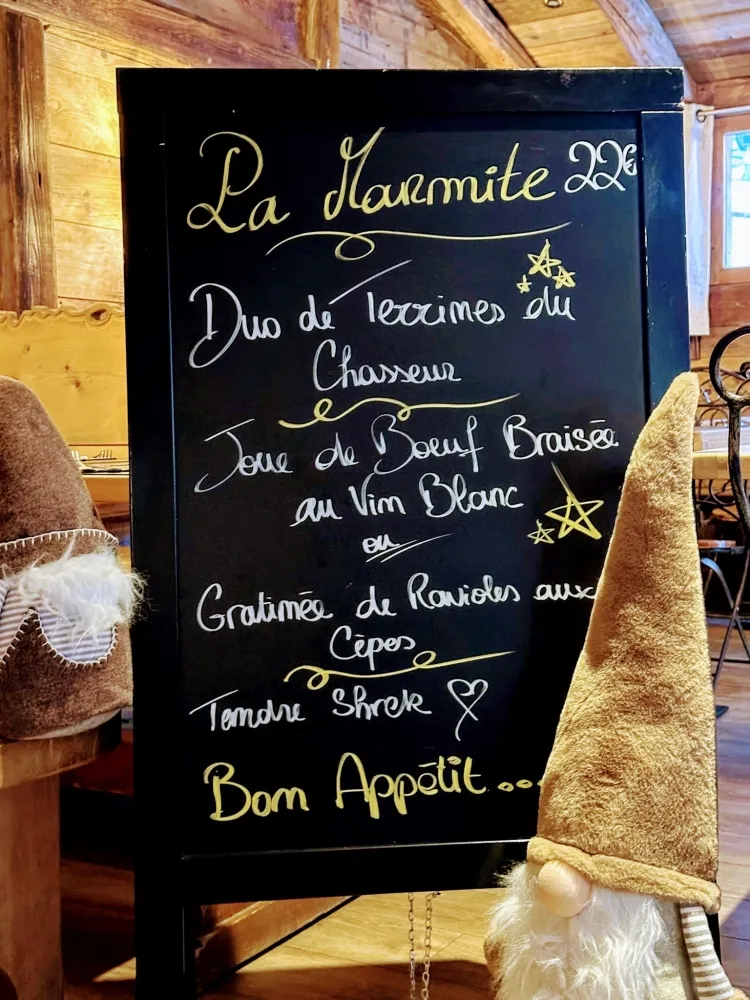 La Marmite 22€
Duo de Terrines du
Chasseur
Joue de Boeuf Braisée
au Vin Blanc
ou
Gratinée de Ravioles aux
Cèpes
Tendre Shrek
Bon Appétit...